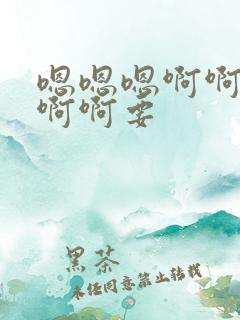 嗯嗯嗯啊啊
啊啊要
黑茶
未经同意禁止转载